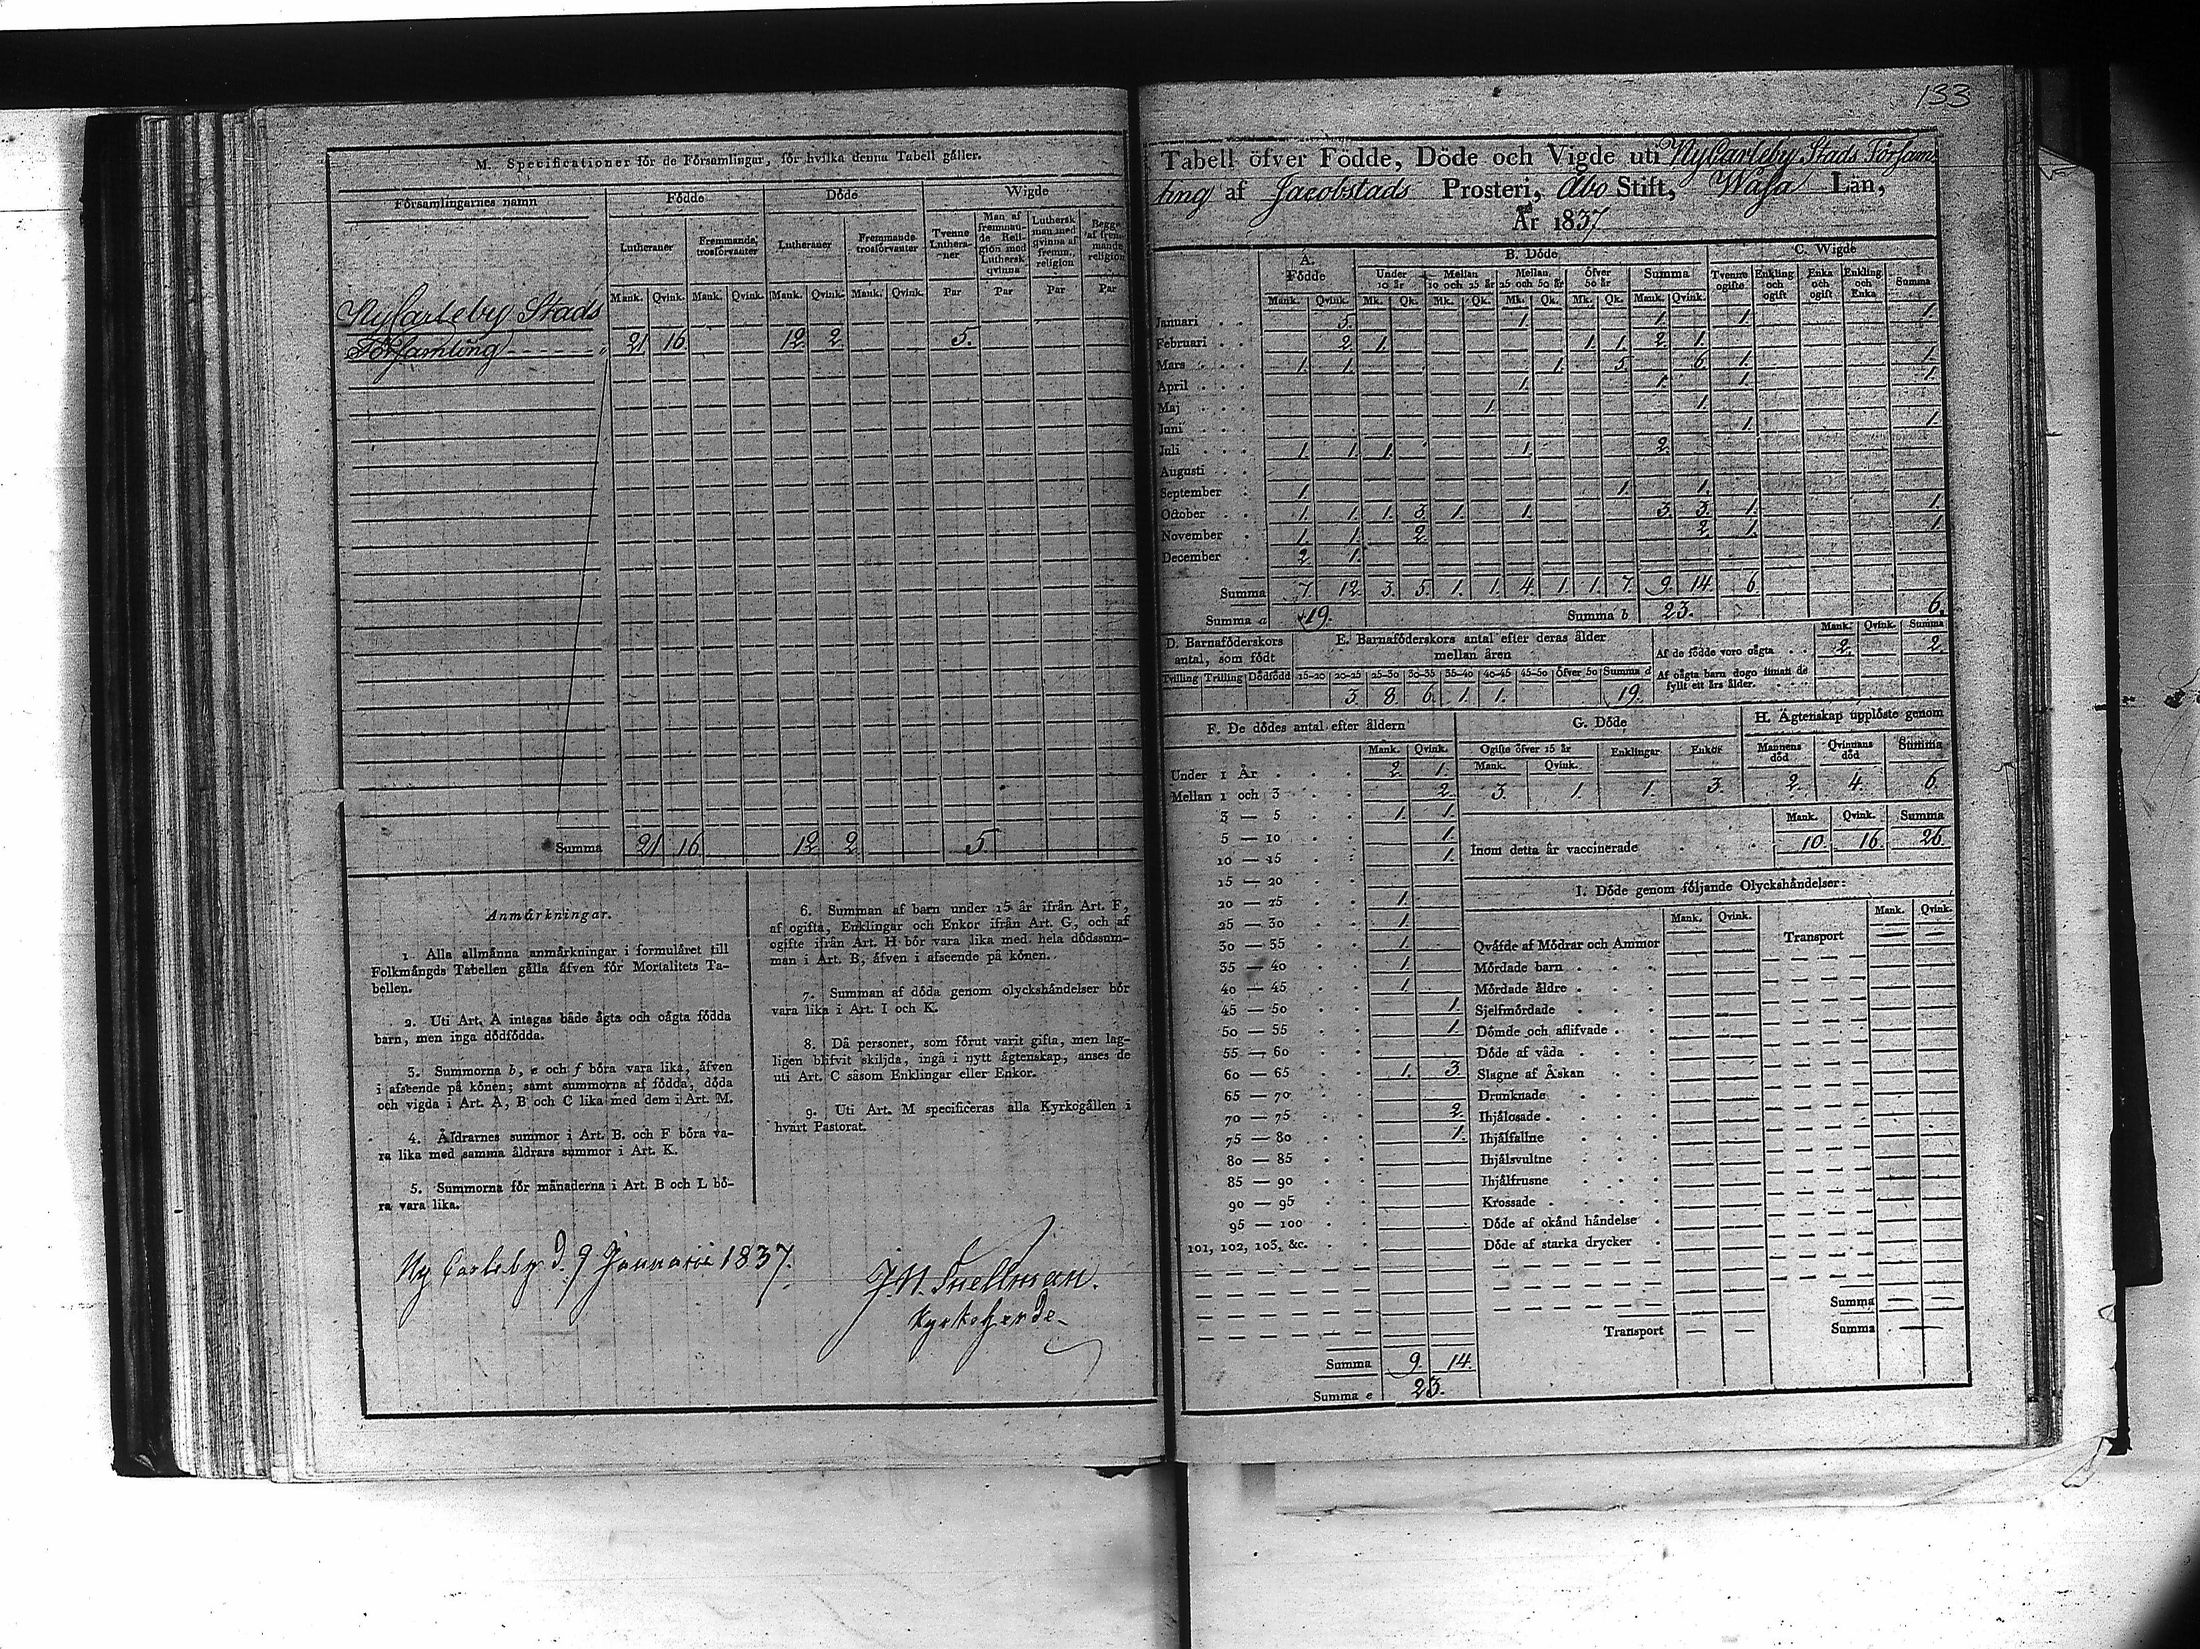 M. Specificationer för de Församlingar, för hvilka denna Tabell gäller.
Församlingarnes namn
Födde
Döde
Wigde
Lutheraner
Fremmande trosförvanter
Lutheraner
Fremmande trosförvanter
Tvenne Lutheraner
Man af fremmande Religion med Luthersk qvinna
Luthersk man med qvinna af fremm. religion
Begge af fremmande religion
Mank. Qvink. Mank. Qvink. Mank. Qvink. Mank. Qvink. Par Par Par Par
NyCarleby Stads
Församling 21 16 12 2 5.
Summa 21 16 12 2 5.
Anmärkningar.
1. Alla allmänna anmärkningar i formuläret till
Folkmängds Tabellen gälla äfven för Mortalitets Ta-
bellen.
2. Uti Art. A intagas både ägta och oägta födda
barn, men inga dödfödda.
3. Summorna b, e och f böra vara lika, äfven
i afseende på könen; samt summorna af födda, döda
och vigda i Art. A, B och C lika med dem i Art. M.
4. Äldrarnes summor i Art. B. och F böra va-
ra lika med samma åldrars summor i Art. K.
5. Summorna för månaderna i Art. B och L bö-
ra vara lika.
6. Summan af barn under 15 år ifrån Art. F,
af ogifta, Enklingar och Enkor ifrån Art. G, och af
ogifte ifrån Art. H bör vara lika med hela dödssum-
man i Art. B, äfven i afseende på könen.
7. Summan af döda genom olyckshändelser bör
vara lika i Art. I och K.
8. Då personer, som förut varit gifta, men lag-
ligen blifvit skiljda, ingå i nytt ägtenskap, anses de
uti Art. C såsom Enklingar eller Enkor.
9. Uti Art. M specificeras alla Kyrkogällen i
hvart Pastorat.
Ny Carleby d. 9 Januarii 1837.
J. N. Snellman.
Kyrkoherde
133
Tabell öfver Födde, Döde och Vigde uti NyCarleby Stads Församling
af Jacobstads Prosteri, Åbo Stift, Wasa Län,
År 1837
A. Födde
B. Döde
C. Wigde
Under 10 år
Mellan 10 och 25 år
Mellan 25 och 50 år
Öfver 50 år
Summa
Tvenne ogifte
Enkling och ogift
Enka och ogift
Enkling och Enka
Summa
Mank. Qvink. Mk. Qk. Mk. Qk. Mk. Qk. Mk. Qk. Mank. Qvink.
Januari 5. 1. 1. 1. 1.
Februari 2. 1. 1. 1. 2. 1.
Mars 1. 1. 1. 5. 6. 1. 1.
April 1. 1. 1. 1.
Maj 1. 1.
Juni 1. 1.
Juli 1. 1. 1. 1. 2.
Augusti
September 1. 1. 1.
October 1. 1. 1. 3. 1. 1. 3. 3. 1. 1.
November 1. 1. 2 2 1. 1.
December 2 1.
Summa 7. 12. 3. 5. 1. 1. 4. 1. 1. 7. 9. 14. 6
Summa a 19. Summa b 23. 6.
D. Barnaföderskors antal, som födt
Tvilling Trilling Dödfödd
E. Barnaföderskors antal efter deras ålder mellan åren
15-20 20-25 25-30 30-35 35-40 40-45 45-50 Öfver 50 Summa d
3. 8. 6. 1. 1. 19.
Mank. Qvink. Summa
Af de födde voro oägta 2. 2.
Af oägta barn dogo innan de fyllt ett års ålder.
F. De dödes antal efter åldern
Mank. Qvink.
Under 1 År 2. 1.
Mellan 1 och 3 2.
3 — 5 1. 1.
5 — 10 1.
10 — 15 1.
15 — 20
20 — 25 1.
25 — 30 1.
30 — 35 1.
35 — 40 1.
40 — 45 1.
45 — 50 1.
50 — 55 1.
55 — 60
60 — 65 1. 3.
65 — 70
70 — 75 2.
75 — 80 1.
80 — 85
85 — 90
90 — 95
95 — 100
101, 102, 103, &c.
Summa 9. 14.
Summa e 23.
G. Döde
Ogifte öfver 15 år
Enklingar
Enkor
Mank. Qvink.
3. 1. 1. 3.
H. Ägtenskap upplöste genom
Mannens död
Qvinnans död
Summa
2. 4. 6.
Mank. Qvink. Summa
Inom detta år vaccinerade 10. 16. 26.
I. Döde genom följande Olyckshändelser:
Mank. Qvink.
Mank. Qvink.
Qväfde af Mödrar och Ammor
Mördade barn
Mördade äldre
Sjelfmördade
Dömde och aflifvade
Döde af våda
Slagne af Åskan
Drunknade
Ihjälosade
Ihjälfallne
Ihjälsvultne
Ihjälfrusne
Krossade
Döde af okänd händelse
Döde af starka drycker
Transport
Transport
Summa
Summa